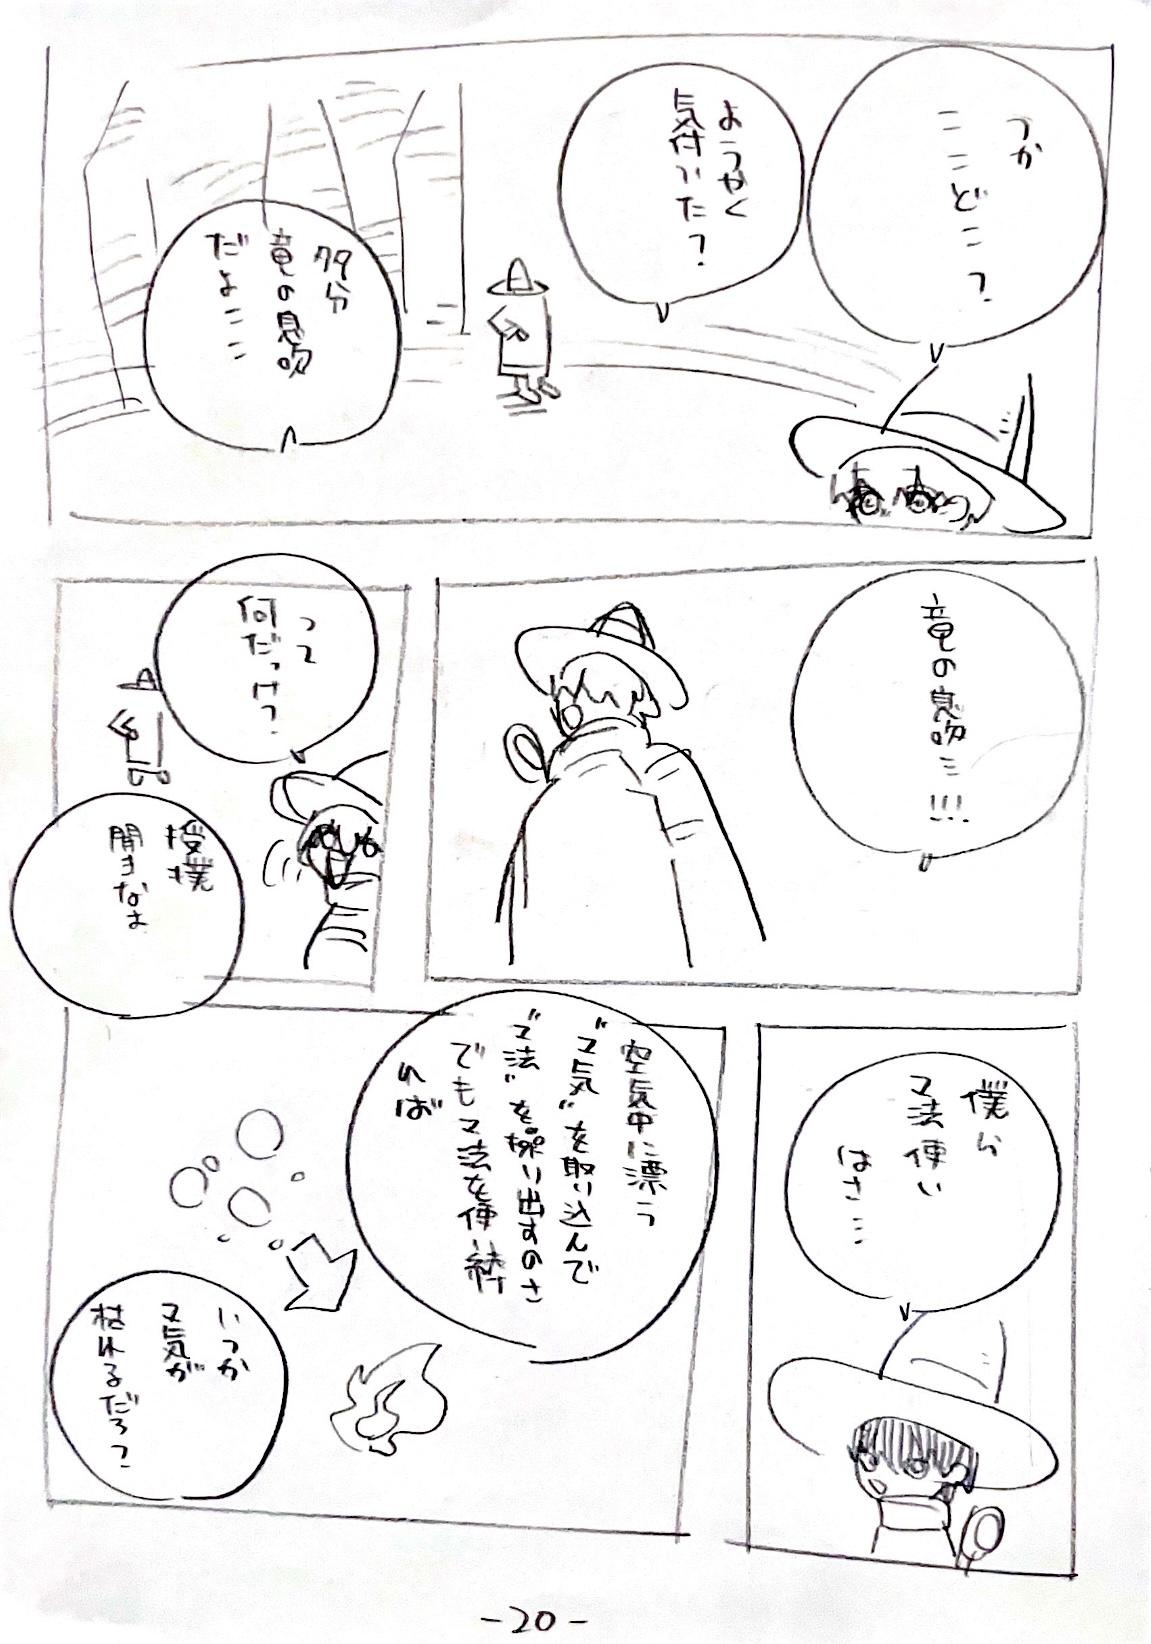 つか
ここどこ?
ようやく
気付いた?
多分
竜の息吹
だよここ
竜の息吹…!!!
って
何だっけ?
授業
聞きなよ
僕ら
マ法使い
はさ…
空気中に漂う
"マ気"を取り込んで
"マ法"を操り出すのさ
でもマ法を使い続け
れば
いつか
マ気が
枯れるだろ?
-20-